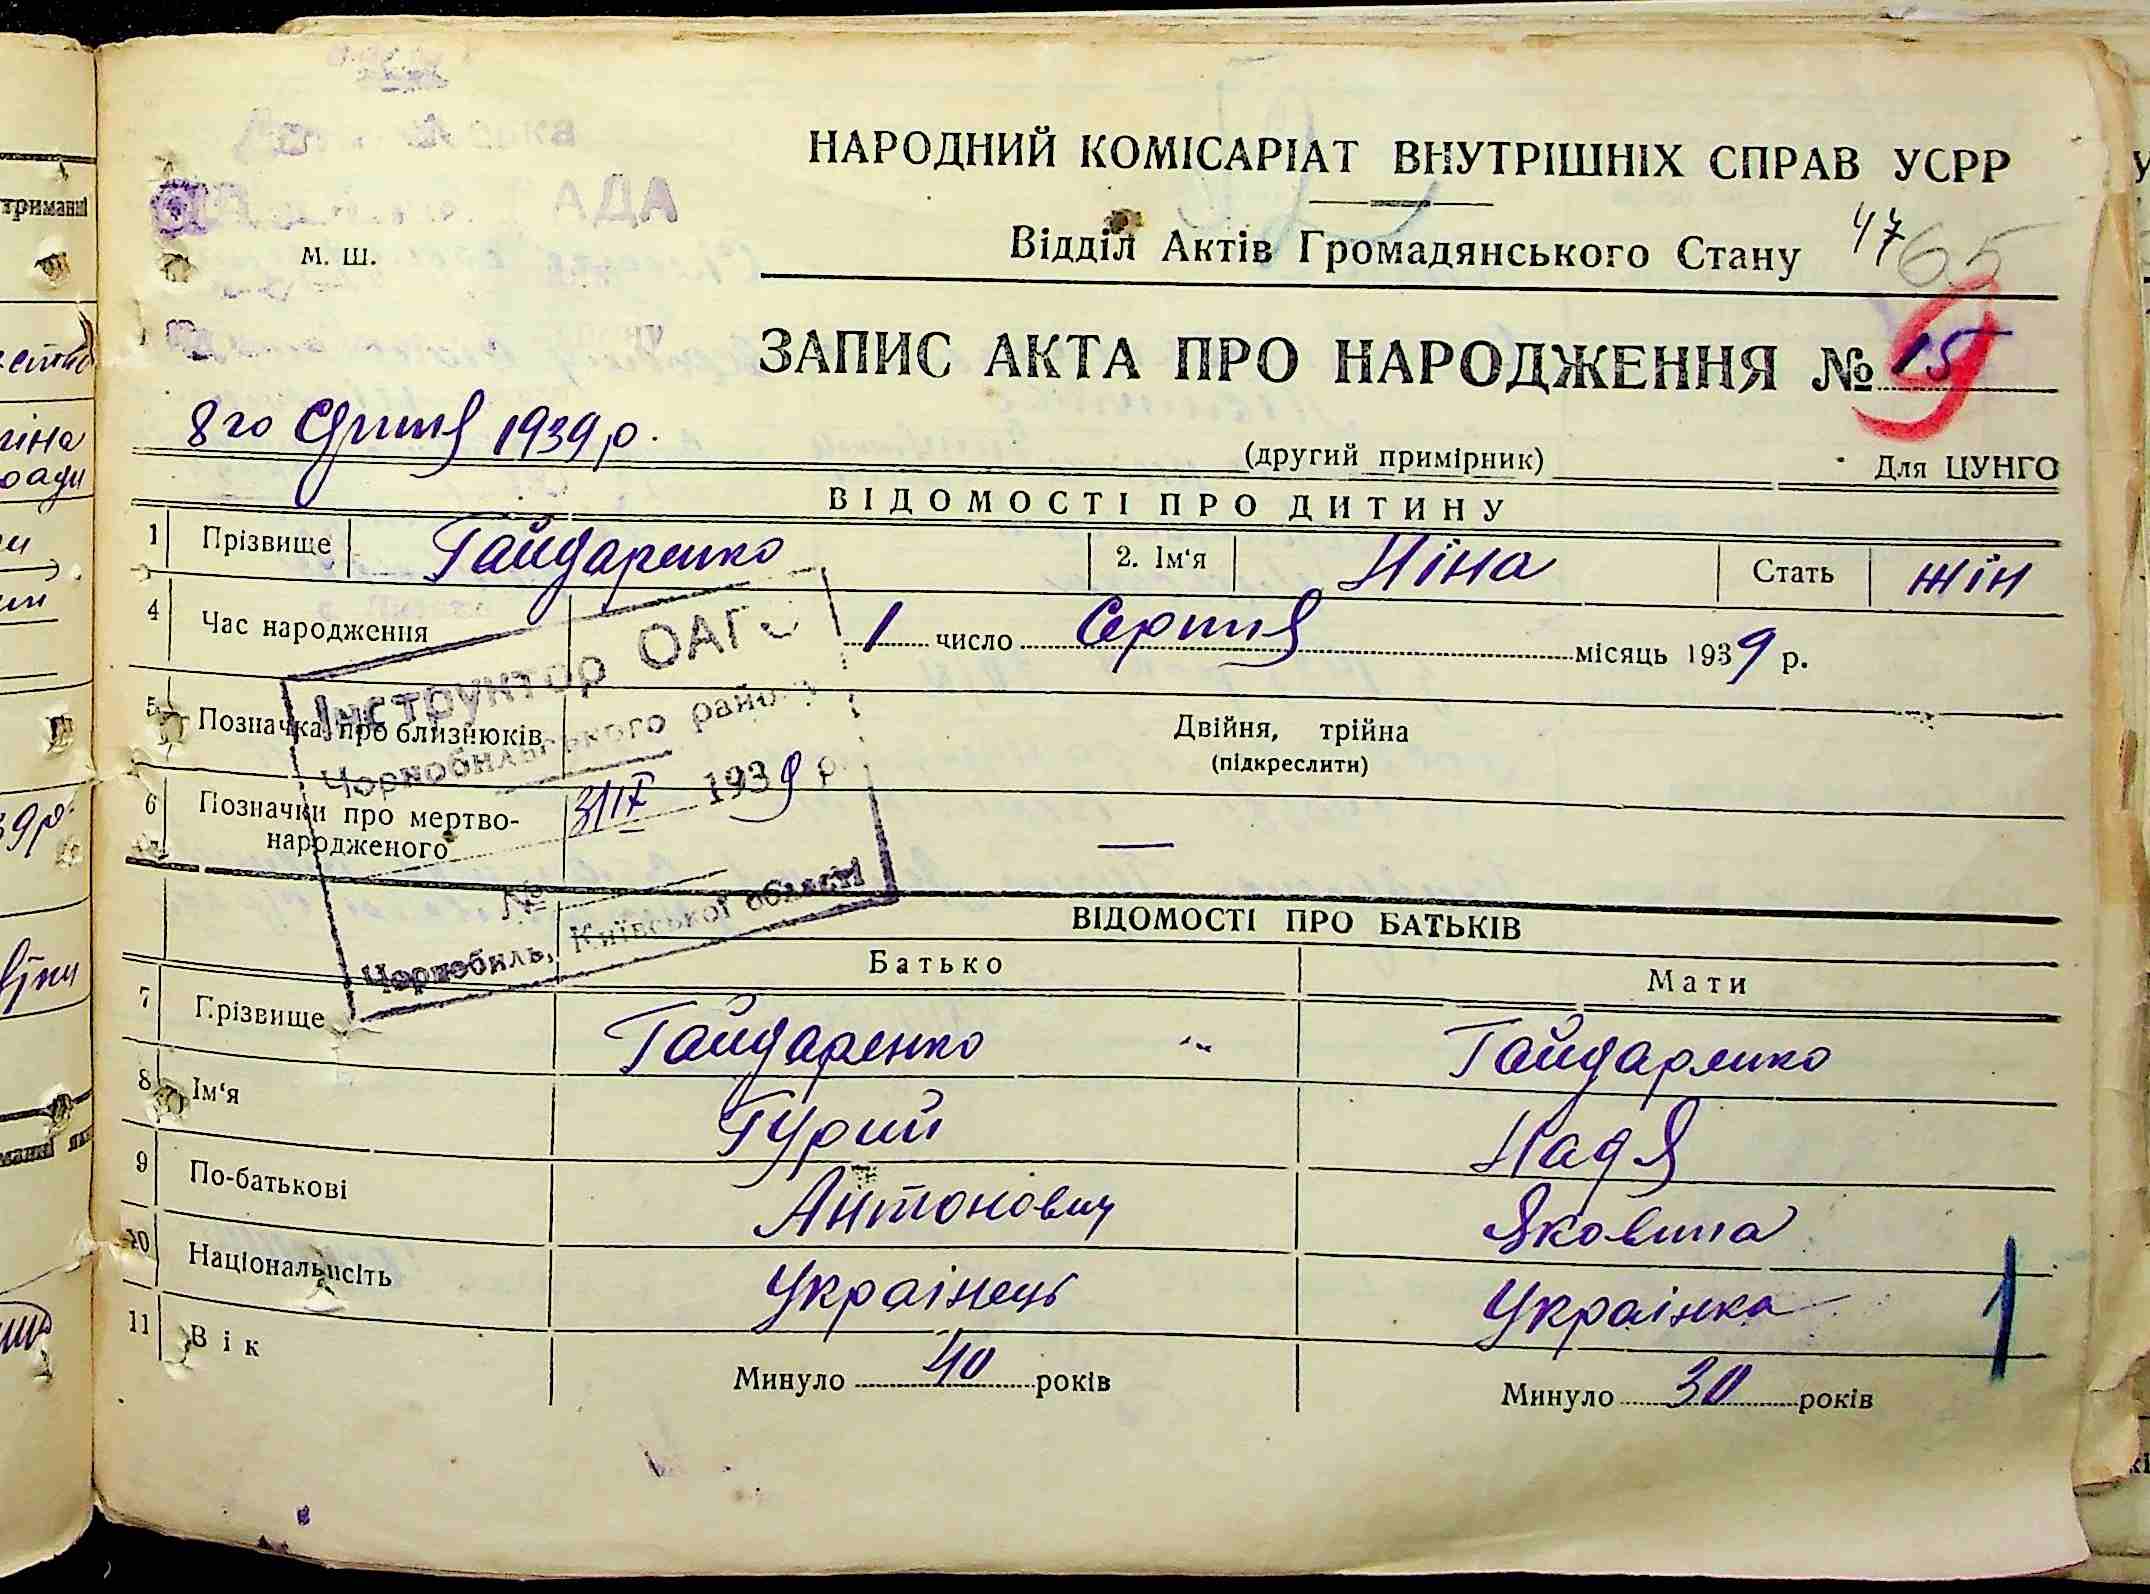 НАРОДНИЙ КОМІСАРІАТ ВНУТРІШНІХ СПРАВ УСРР
м. ш.
Відділ Актів Громадянського Стану 47 65
ЗАПИС АКТА ПРО НАРОДЖЕННЯ № 15 9
8го Серпня 1939 р.
(другий примірник) Для ЦУНГО
ВІДОМОСТІ ПРО ДИТИНУ
1 Прізвище Гайдаренко 2. Ім'я Ніна Стать жін
4 Час народження 1 число Серпня місяць 1939 р.
Інструктор ОАГС
Чорнобильського району
5 Позначка про близнюків Двійня, трійна
(підкреслити)
1939 р.
6 Позначки про мертво-
народженого —
№
Чорнобиль, Київської області
ВІДОМОСТІ ПРО БАТЬКІВ
Батько Мати
7 Прізвище Гайдаренко Гайдаренко
8 Ім'я Гурий Надя
9 По-батькові Антонович Яковина
10 Національність Українець Українка
1
11 Вік Минуло 40 років Минуло 30 років